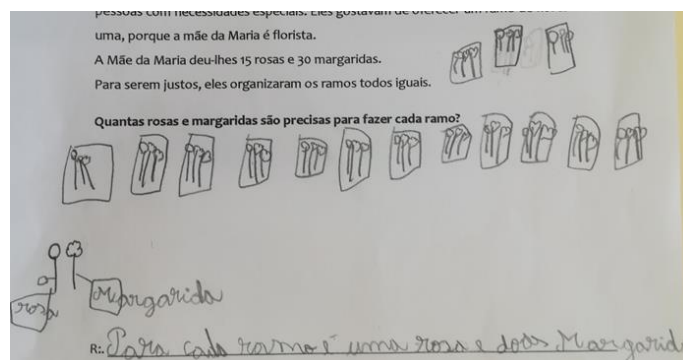 pessoas com necessidades especiais. Eles gostavam de oferecer um ramo de
uma, porque a mãe da Maria é florista.
A Mãe da Maria deu-lhes 15 rosas e 30 margaridas.
Para serem justos, eles organizaram os ramos todos iguais.
Quantas rosas e margaridas são precisas para fazer cada ramo?
Margarida
rosa
R:. Para cada ramo é uma rosa e doas Margarid